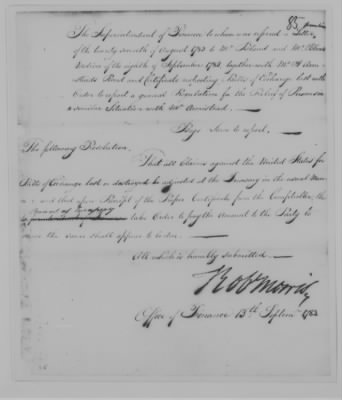 85
The Superintendent of Finance to whom was referred a Letter
of the twenty seventh of August 1783 to Mr.
Motion of the eighth of September 1783, together with Mr.
Bond and Certificate respecting Bills of Exchange lost with
Order to report a general Resolution for the Relief of Persons in
a similar Situation with Mr
Begs leave to report.
The following Resolution.
That all Claims against the United States for
Bills of Exchange lost or destroyed be adjusted at the Treasury in the usual Man
and that upon Receipt of the Proper Certificate from the Comptroller, the
take Order to pay the Amount to the Party to
the same shall appear to be due.
All which is humbly submitted
Rob Morris
Office of Finance 13th Septem 1783